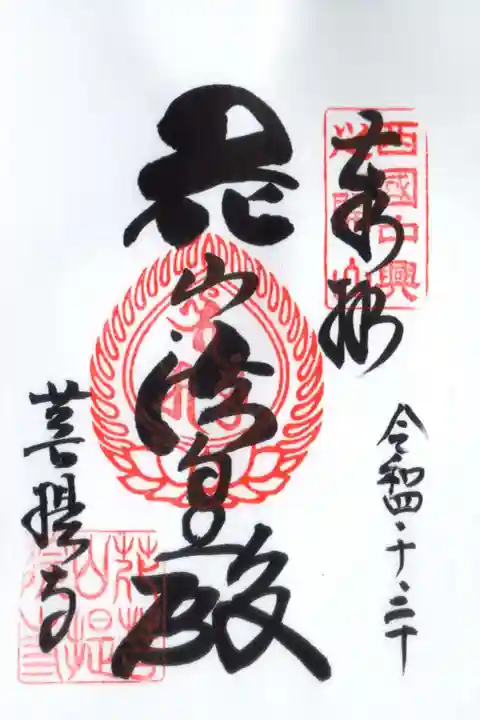 西國中興
奉拝
令和四・十・
花山法皇殿
菩提寺